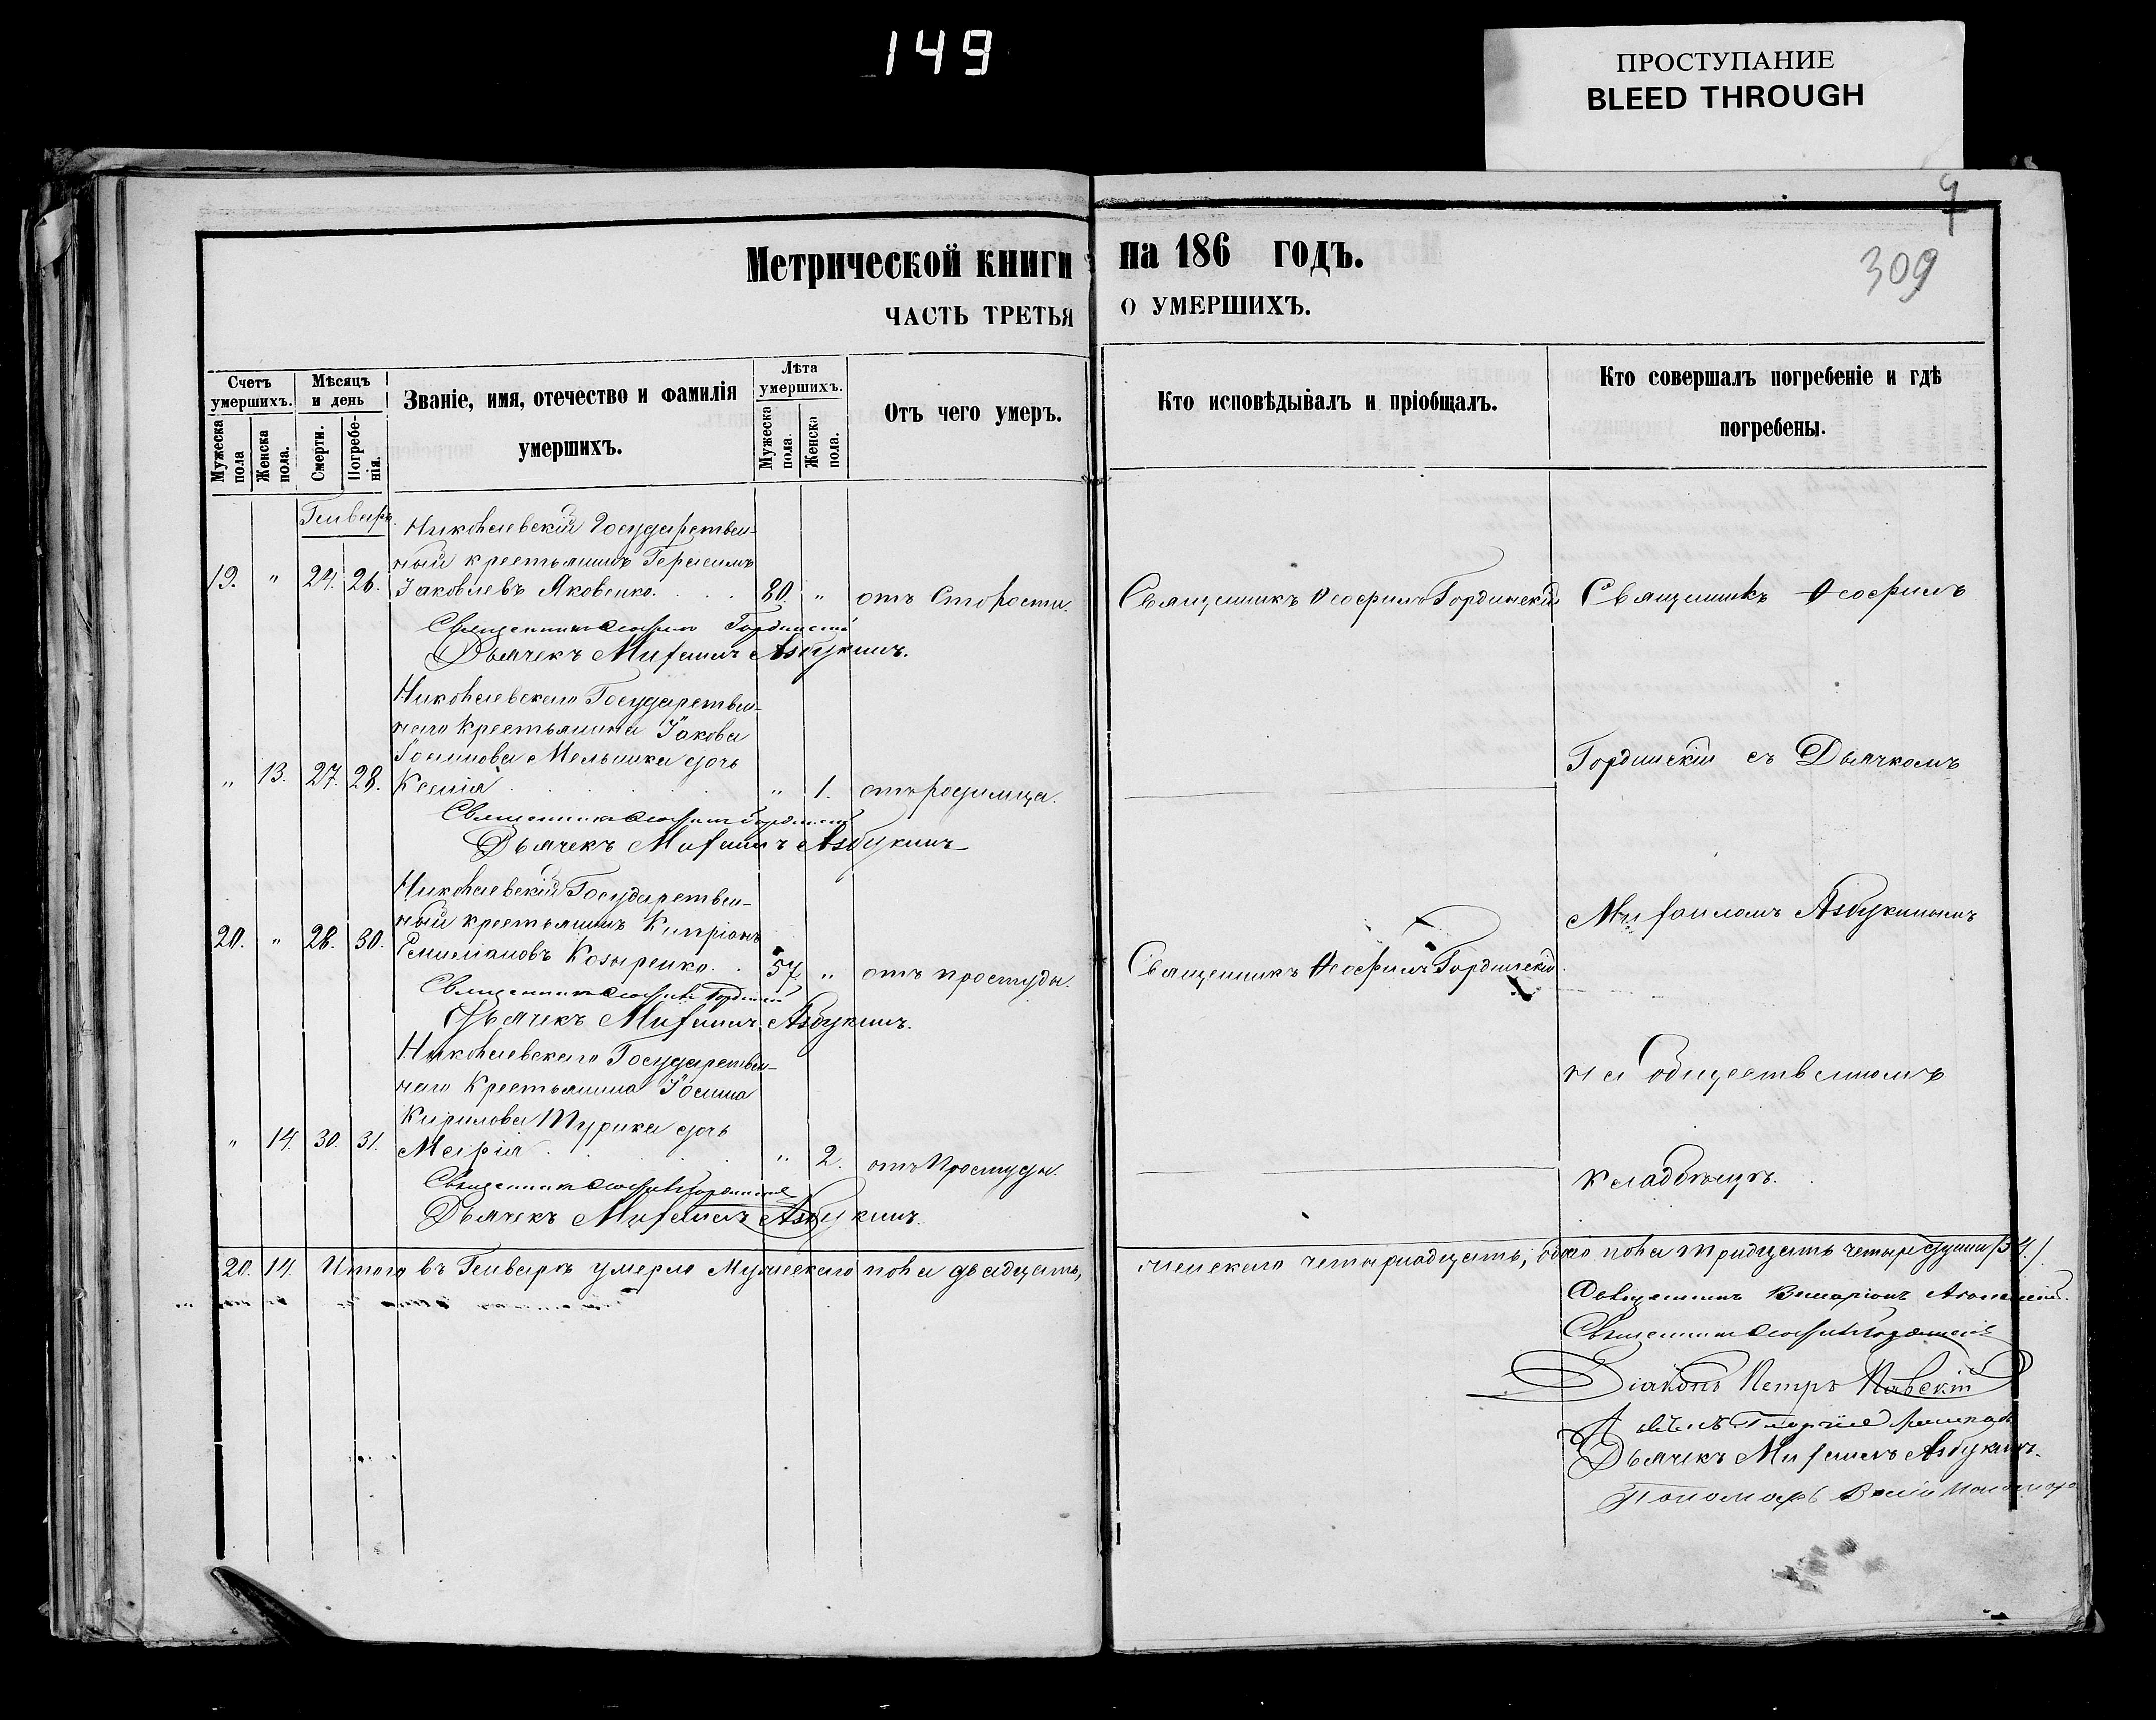 149
ПРОСТУПАНИЕ
BLEED THROUGH
309
Метрической книги на 186 годъ.
ЧАСТЬ ТРЕТЬЯ О УМЕРШИХЪ.
Счетъ умершихъ.
Мужеска пола
Женска пола.
Мѣсяцъ и день
Смерти.
Погребенія.
Званіе, имя, отечество и фамилія
умершихъ.
Лѣта умершихъ.
Мужеска пола.
Женска пола.
Отъ чего умеръ.
Кто исповѣдывалъ и пріобщалъ.
Кто совершалъ погребеніе и гдѣ
погребены.
Генварь.
Николаевскій Государствен-
ный крестьянинъ Герасимъ
19. " 24. 26. Іаковлевъ Яковенко. 80. " отъ Старости. Священникъ Ѳеофилъ Гординскій Священникъ Ѳеофилъ
Священникъ Ѳеофилъ Гординскій
Дьячекъ Михаилъ Азбукинъ.
Николаевскаго Государствен-
наго Крестьянина Іакова
Іоаннова Мельника дочь Гординскій съ Дьячкомъ
" 13. 27. 28. Ксенія " 1. отъ родимца.
Священникъ Ѳеофилъ Гординскій
Дьячекъ Михаилъ Азбукинъ
Николаевскій Государствен-
ный крестьянинъ Кипріанъ Михаиломъ Азбукинымъ
20. " 28. 30. Козыренко. 57. " отъ простуды. Священникъ Ѳеофилъ Гординскій.
Священникъ Ѳеофилъ Гординскій
Дьячекъ Михаилъ Азбукинъ.
Николаевскаго Государствен-
наго Крестьянина Іоанна на Общественномъ
Кирилова Турика дочь
" 14. 30. 31. Марія " 2. отъ Простуды. кладбищѣ.
Священникъ Ѳеофилъ Гординскій
Дьячекъ Михаилъ Азбукинъ.
20. 14. Итого въ Генварѣ умерло Мужескаго пола двадцать, женскаго четырнадцать, обоего пола тридцать четыре души /34/.
Священникъ
Священникъ Ѳеофилъ Гординскій
Діаконъ Петръ
Дьячекъ Михаилъ Азбукинъ.
Пономарь